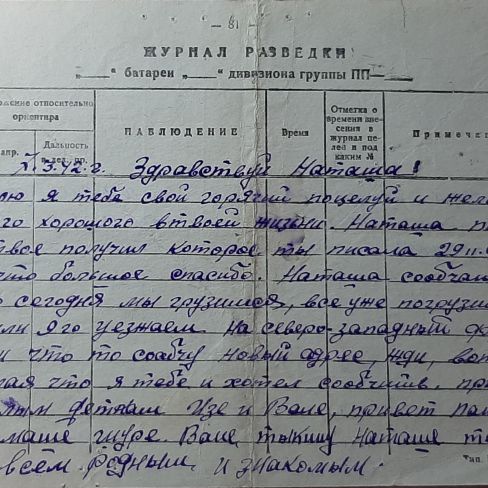 — 81 —
ЖУРНАЛ РАЗВЕДКИ
„___“ батареи „___“ дивизиона группы ПП—
ожение относительно ориентира
НАБЛЮДЕНИЕ
Время
Отметка о времени внесения в журнал целей и под каким №
Примеча
апр.
Дальность в дел. пр.
3.42. г. Здравствуй Наташа!
лю я тебе свой горячий поцелуй и жела
го хорошего в твоей жизни. Наташа п
твое получил которое ты писала 29.11.
что большое спасибо. Наташа сообчаю
сегодня мы грузимся, все уже погрузи
уезжаем на северо-западный ф
и что то сообчу новый адрес, жди, вот
ная что я тебе и хотел сообчить. при
деткам Изе и Вале, привет па
маше шуре. Ване, тыкишу Наташе т
всем родным и знакомым.